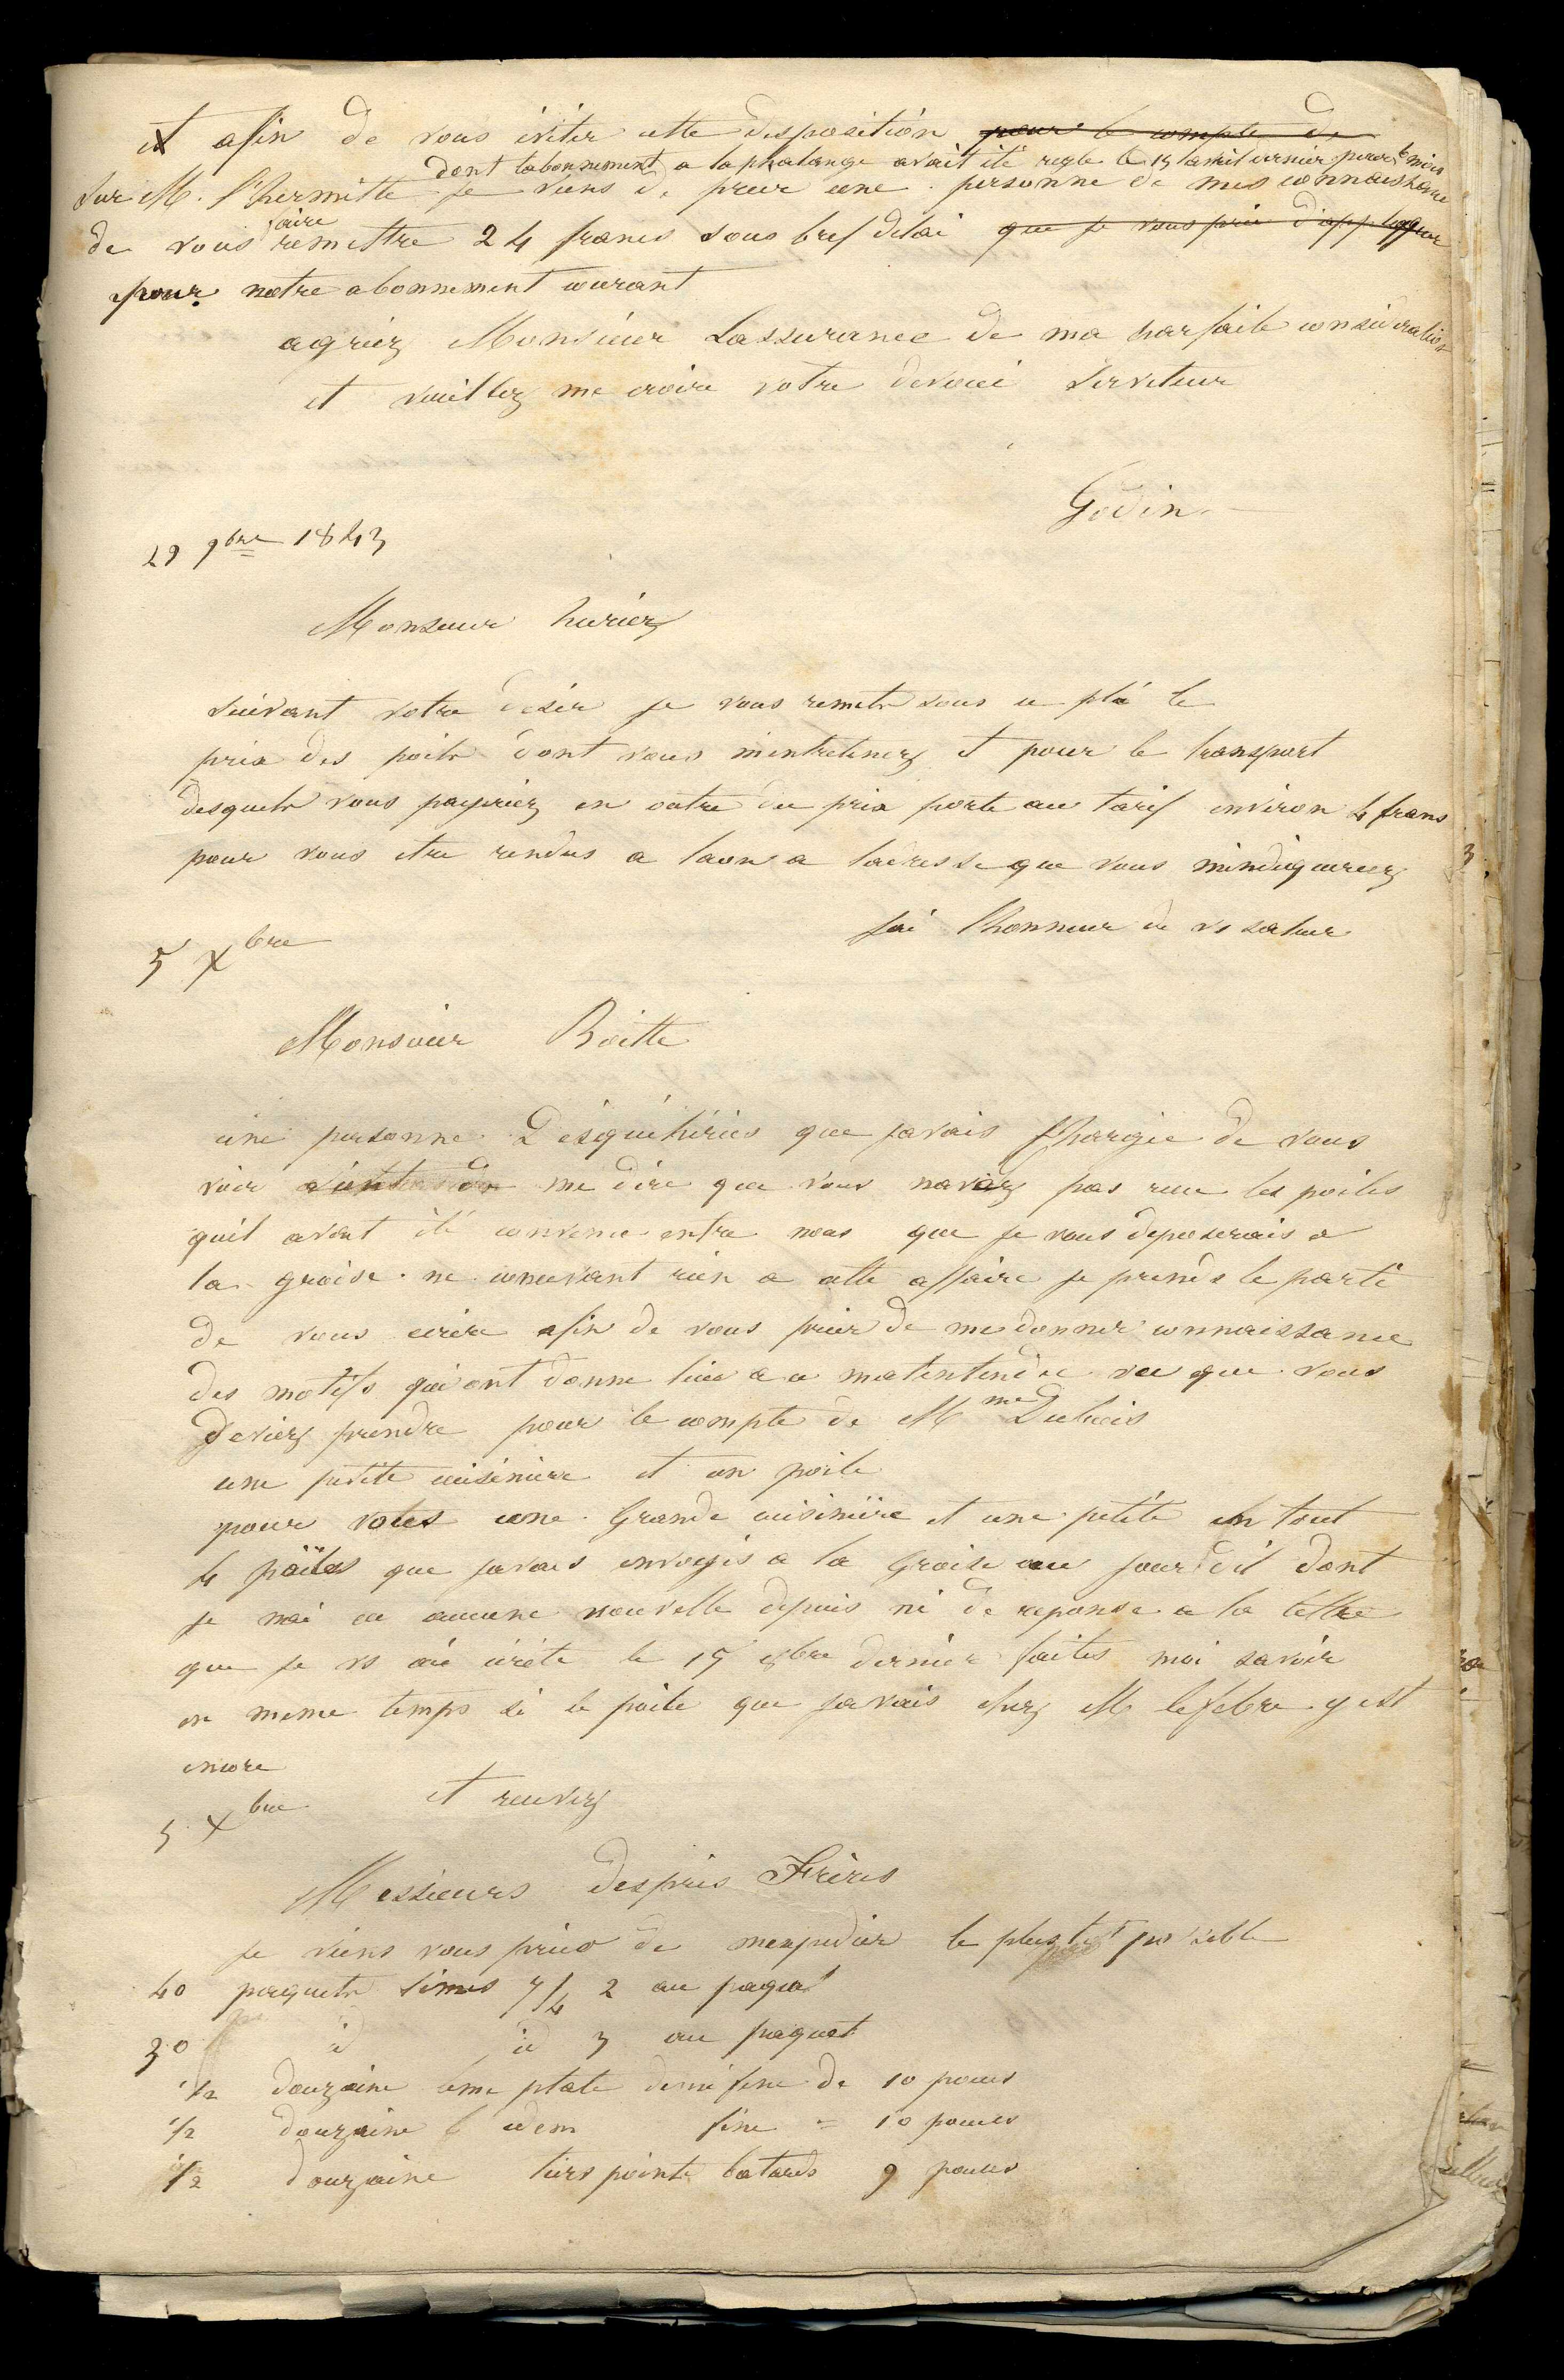 et afin de vous éviter cette disposition pour le compte de
dont labonnement a la phalange avait été reglé le 15 avril dernier pour 6 mois
Sur M. l'hermitte je viens de prier une personne de mes connaissance
faire
de vous remettre 24 francs sous bref delai que je vous prie d'appliquer
pour notre abonnement courant
agréez Monsieur Lassurance de ma parfaite consideration
et veuillez me croire votre devoué Serviteur
Godin
29 9bre 1843
Monsieur huriez
Suivant votre desir je vous remets sous ce pli le
prix des poils dont vous mentretenez et pour le transport
desquels vous payeriez en outre du prix porté au tarif environ 4 francs
pour vous etre rendus a laon a ladresse que vous mindiqueriez
jai lhonneur de vs saluer
5 Xbre
Monsieur Boitte
une personne Désquéhéries que javais chargée de vous
voir vient de me dire que vous navez pas recu les poiles
quil avait été convenu entre nous que je vous deposerais a
la groise. ne concevant rien a cette affaire je prends le parti
de vous ecrire afin de vous prier de me donner connaissance
des motifs qui ont donné lieu a ce malentendu vu que vous
deviez prendre pour le compte de Mme Dubois
une petite cuisinière et un poile
pour vous une Grande cuisinière et une petite en tout
4 poiles que javais envoyés a la Groise au jour dit dont
je nai eu aucune nouvelle depuis ni de reponse a la lettre
que je vs ai écrite le 15 dernier faites moi savoir
en meme temps si le poile que javais chez M lefebre y est
encore
et recevez
5 Xbre
Messieurs Desprès Frères
je viens vous prier de mexpedier le plus tot possible
40 paquets limes 7/4 2 au paquet
30 id id 3 au paquet
1/2 douzaine lime plate demi fine de 10 pouces
1/2 douzaine idem fine = 10 pouces
1/2 douzaine tiers pointe batards 9 pouces